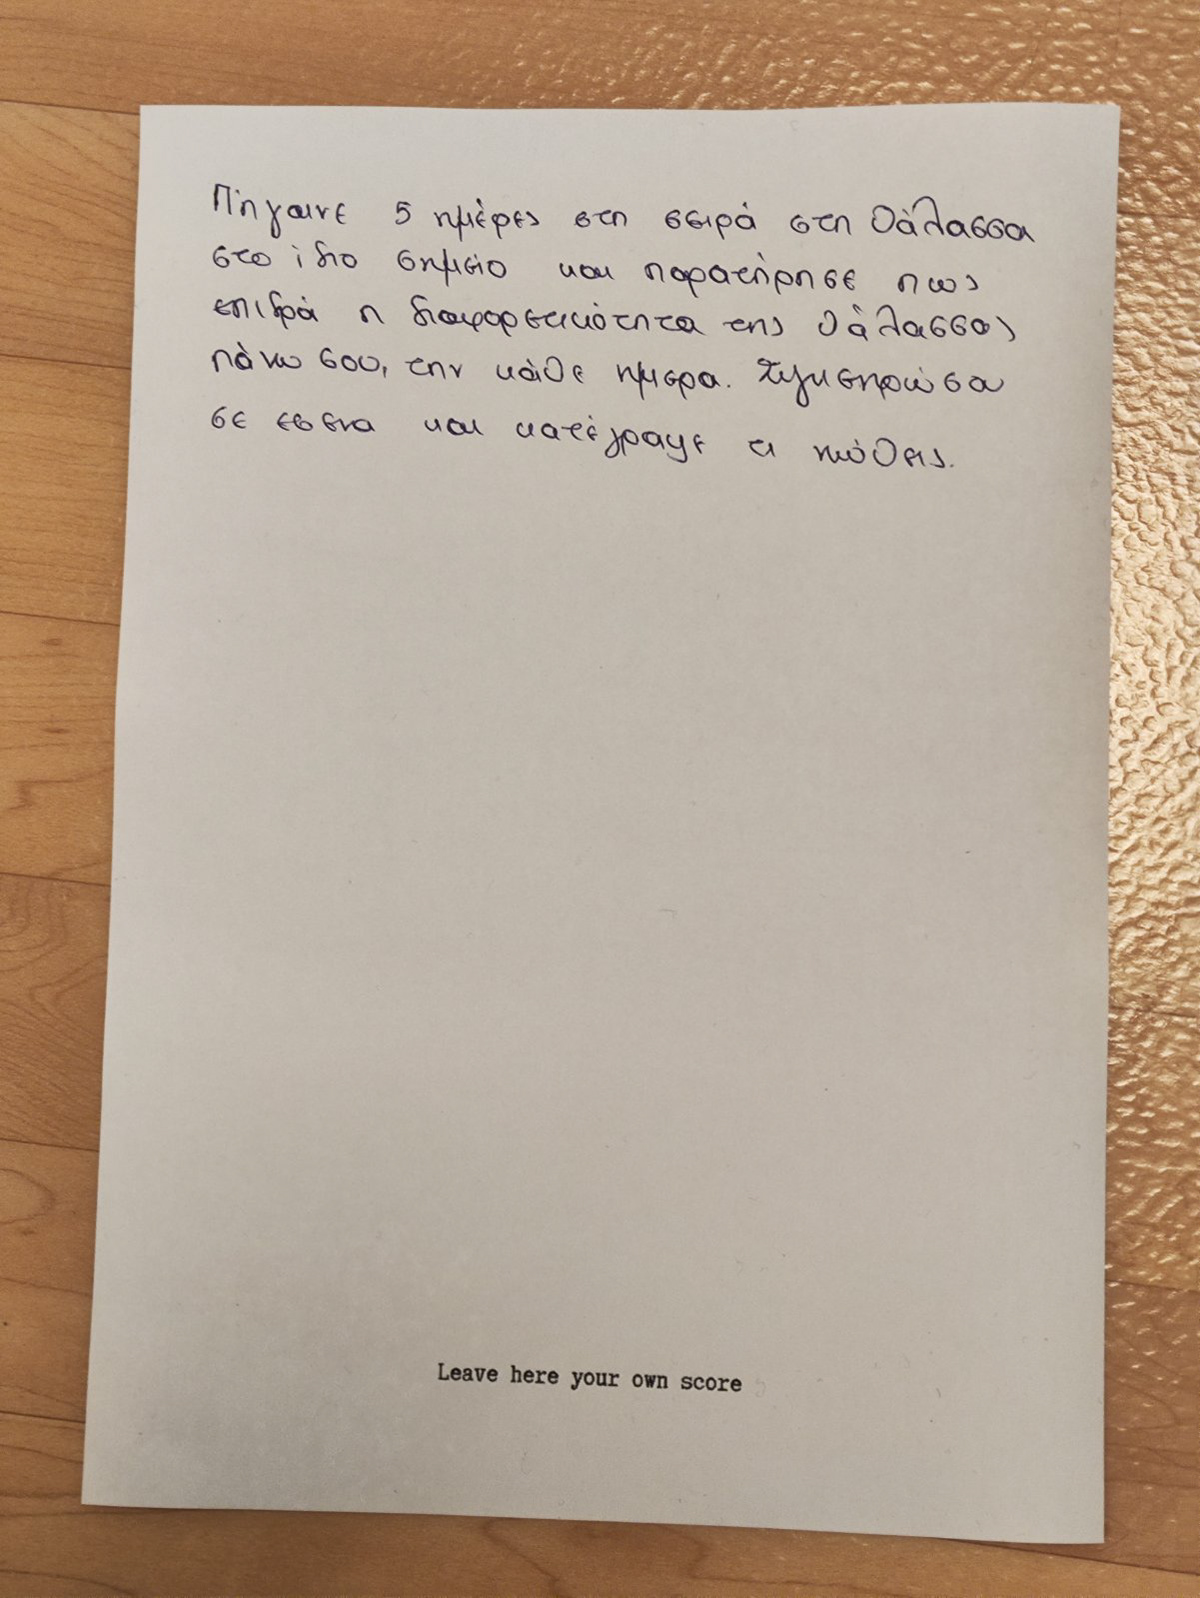 Πήγαινε 5 ημέρες στη σειρά στη θάλασσα
στο ίδιο σημείο και παρατήρησε πως
επιδρά η διαφορετικότητα της θάλασσας
πάνω σου, την κάθε ημερα.
σε εσενα και κατέγραψε τι νιώθεις.
Leave here your own score